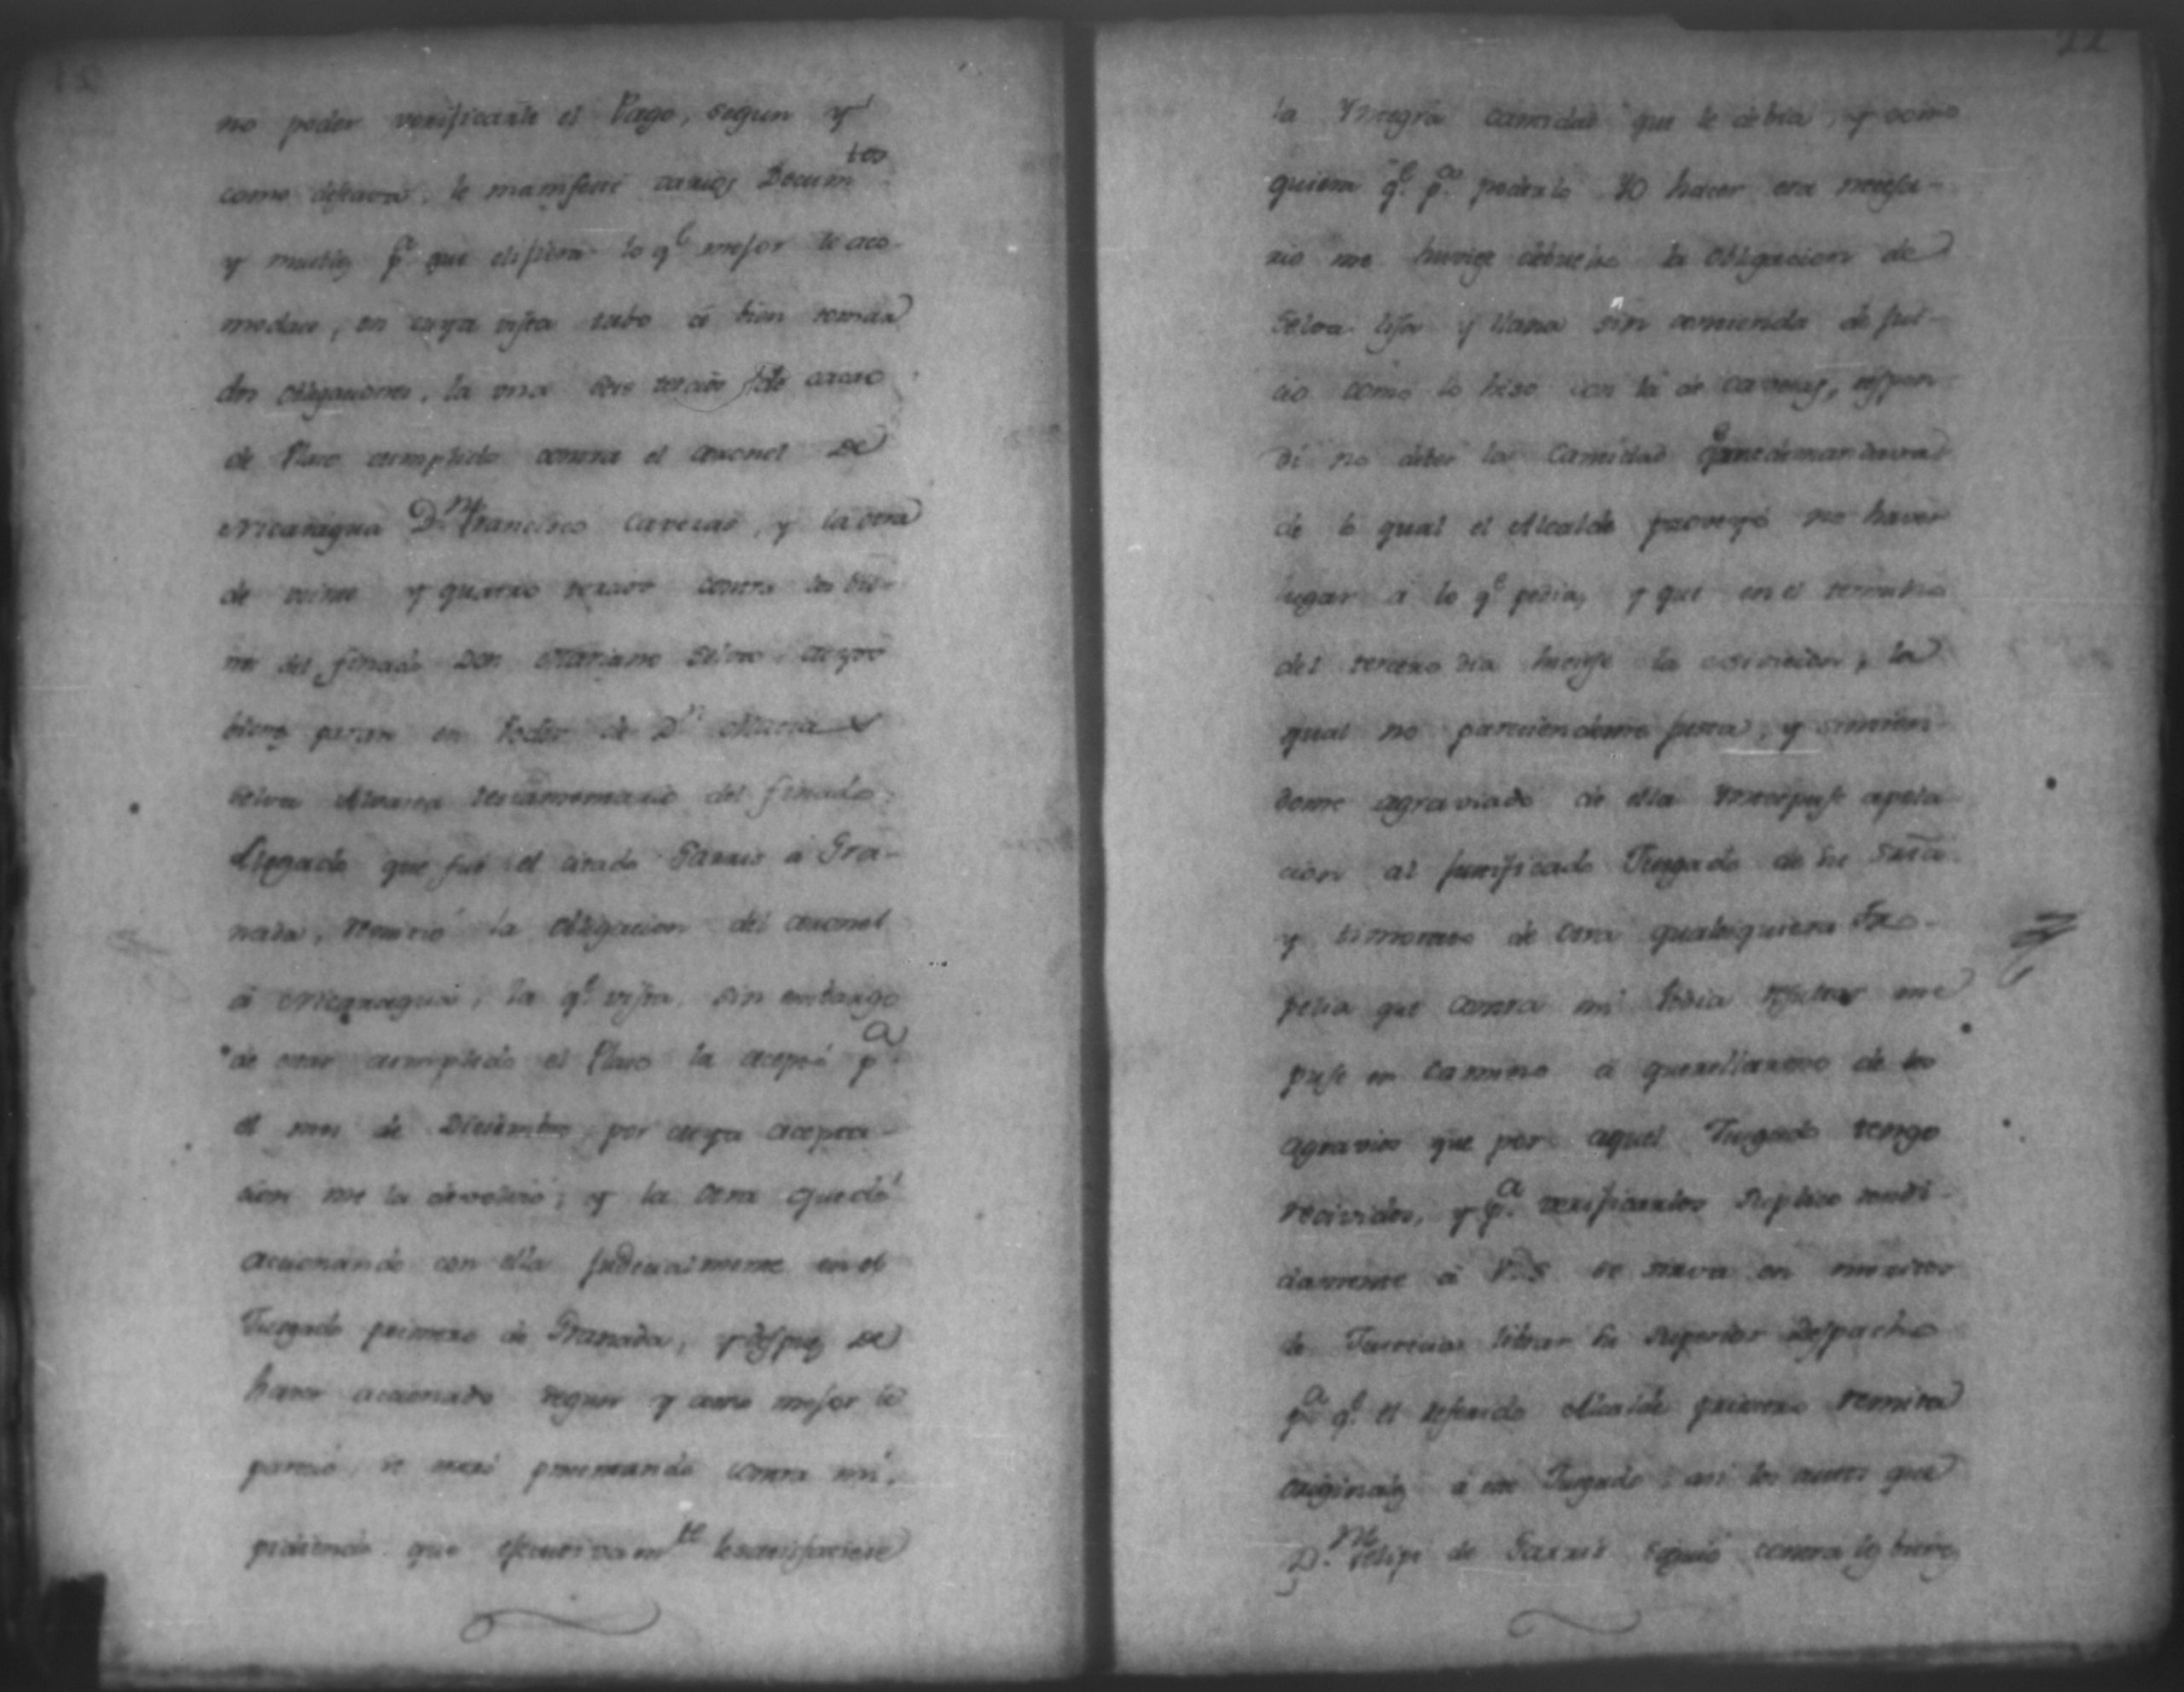 no poder verificarle el Pago, segun y
como deseava, le manifesté varios Docum.tos
y muebles p.a que elijiera lo q.e mejor le aco-
modase, en cuya vista tubo á bien tomar
dos obligaciones, la una seis tercios de cacao
de Plazo cumplido contra el coronel de
Nicaragua D.n Francisco Cavezas, y la otra
de veinte y quatro tercios contra los bie-
nes del finado Don Mariano Selva cuyos
bienes paran en Poder de D.n Maria
Selva Alvacea testamentario del finado.
Llegado que fué el citado Sarria á Gra-
nada, remitió la obligacion del coronel
á Nicaragua, la q.e vista, sin embargo
de estar cumplido el Plazo la aceptó p.a
el mes de Diciembre, por cuya acepta-
cion me la devolvió; y la otra quedó
accionando con ella judicialmente en el
Juzgado primero de Granada, y despues de
haver accionado segun y como mejor le
pareció, se presentando contra mi,
pidiendo que ejecutivam.te le satisfaciese
22
la Yntegra cantidad que le debia, y como
quiera q.e p.a poderlo YO hacer era necesa-
rio me huviese debuelto la obligacion de
Selva lisa y llana sin contienda de jui-
cio como lo hiso con la de Cavezas, respon-
di no deber la cantidad q.e me demandava
de lo qual el Alcalde proveyó no haver
lugar a lo q.e pedia, y que en el termino
del tercero dia hiciese la , la
qual no pareciendome justa, y sintien-
dome agraviado de ella Ynterpuse apela-
cion al justificado Juzgado de
y temoroso de otra qualesquiera tro-
pelia que contra mi Podia resultar me
puse en camino á querellarme de los
agravios que por aquel Juzgado tengo
recividos, y p.a verificarlos Suplico rendi-
damente á V.S. se sirva en meritos
de Justicia librar su Superior Despacho
p.a q.e el referido Alcalde primero remita
originales á este Juzgado, asi los autos que
D.n Felipe de Sarria siguió contra los bienes